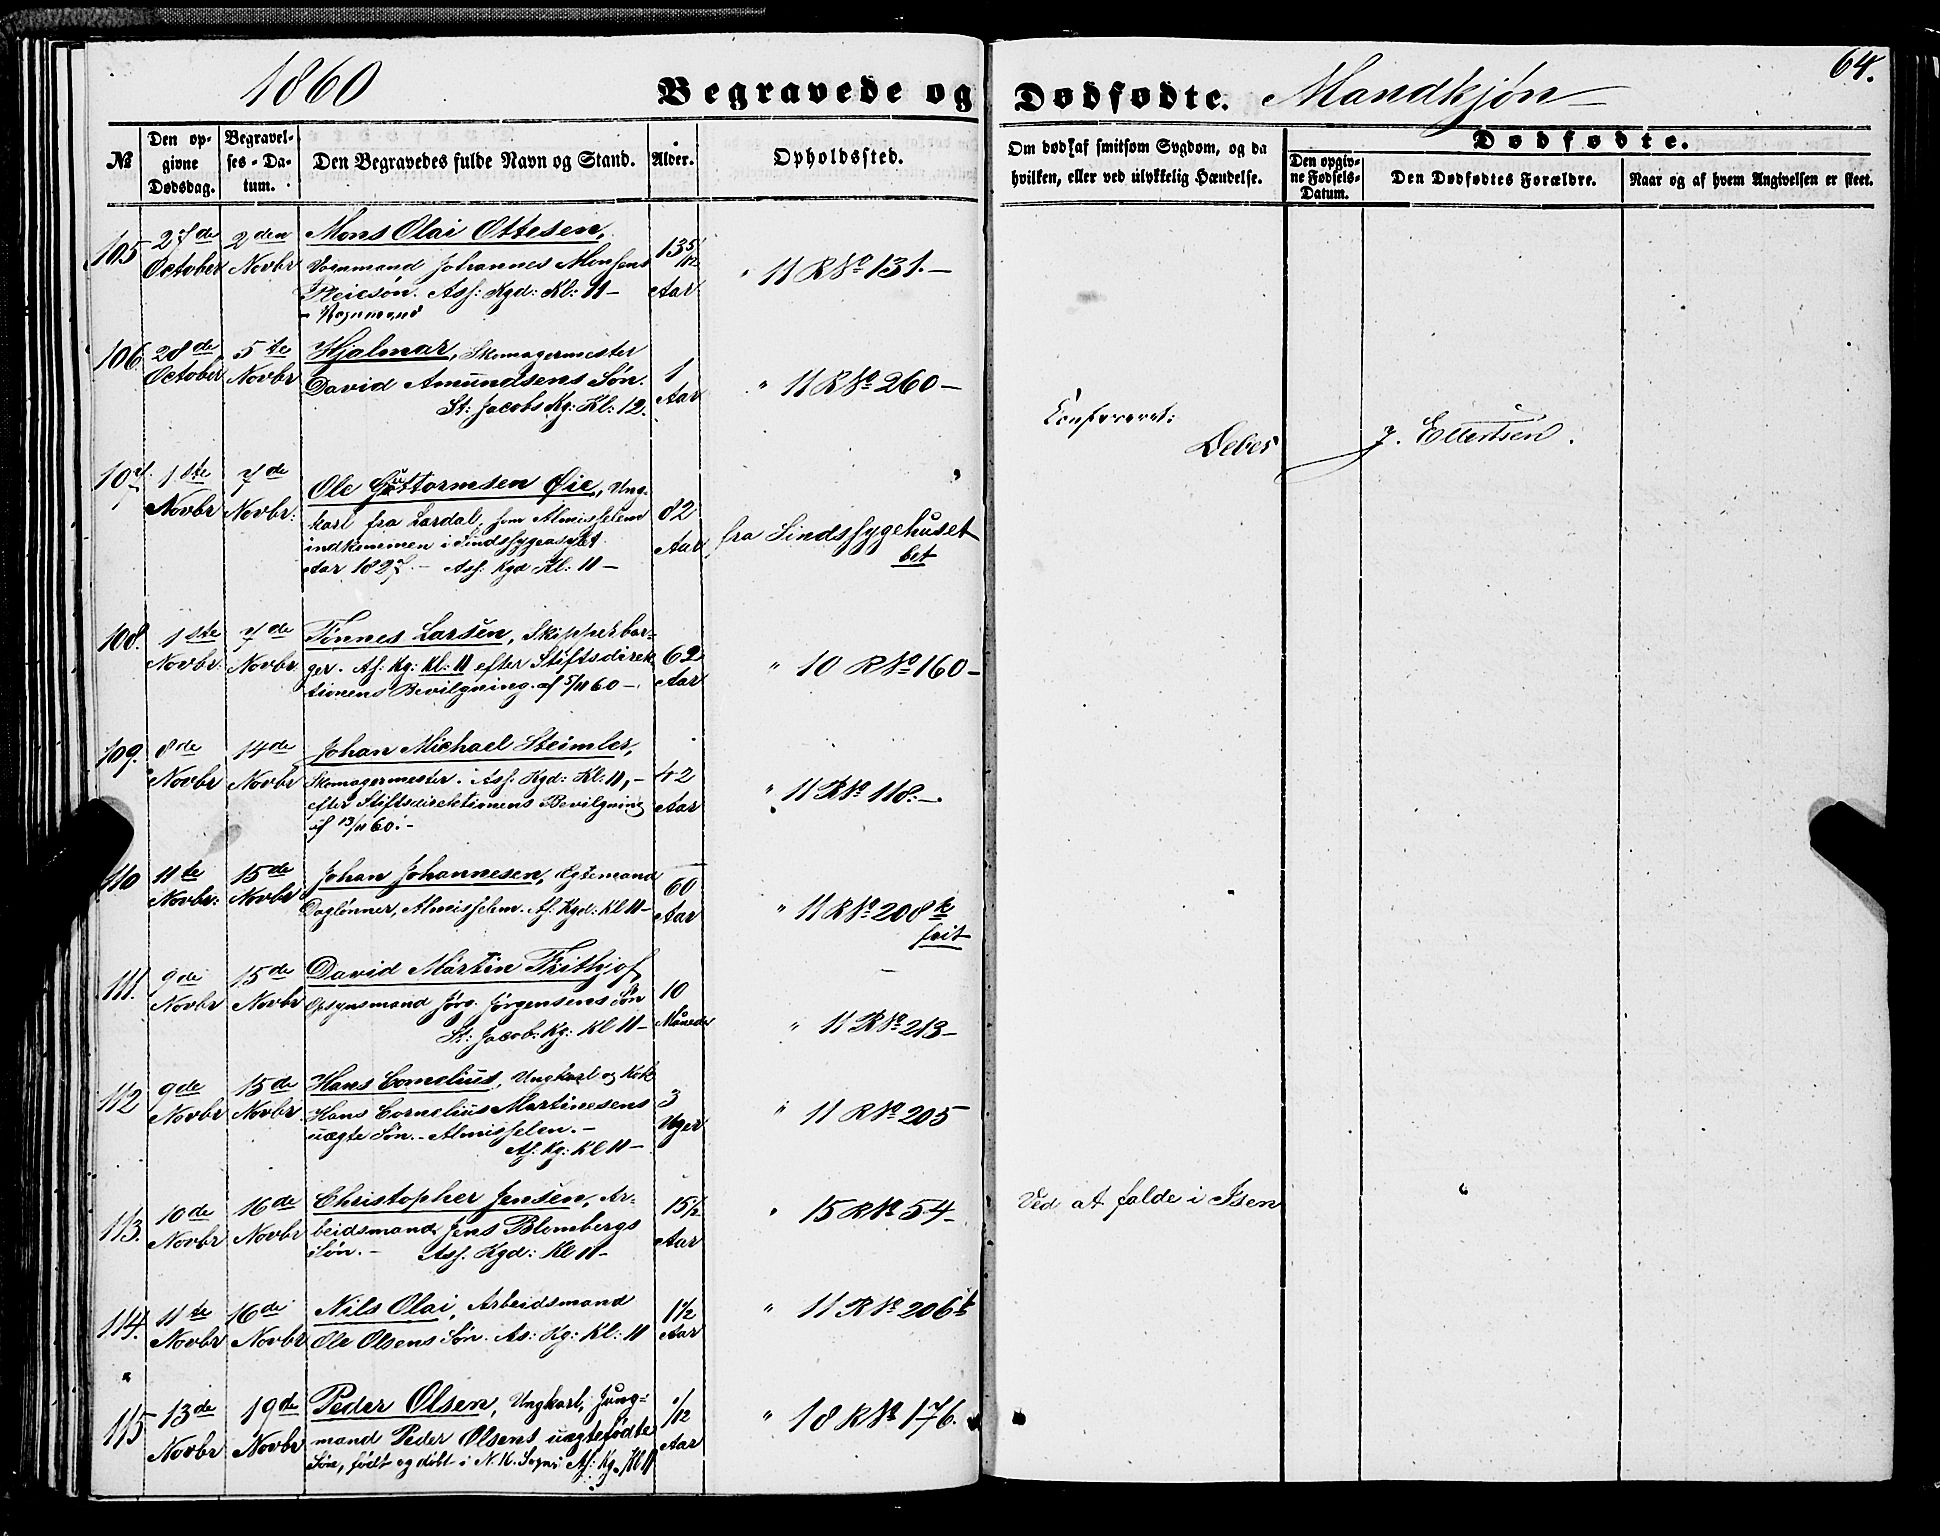 1860
Begravede og Dødfødte. Mandkjøn
64.
No
Den opgivne Dødsdag.
Begravelses-Datum.
Den Begravedes fulde Navn og Stand.
Alder.
Opholdssted.
Om død af smitsom Sygdom, og da
hvilken, eller ved ulykkelig Hændelse.
Dødfødte.
Den opgivne Fødsels-Datum.
Den Dødfødtes Forældre.
Naar og af hvem Angivelsen er skeet.
105 27de October 2den Novbr
Mons Olai Ottesen,
Vognmand Johannes Monsens
Pleiesøn. Ass: Kgd: Kl: 11 –
– Vognmand
13 5/12 Aar
" 11 R No 131. –
106. 28de October 5te Novbr
Hjalmar, Skomagermester
David Amundsens Søn.
St: Jacobs Kg: Kl: 12.
1 Aar
" 11 R No 260 –
Confereret:
Debes
J. Ellertsen.
107. 1ste Novbr 7de Novbr:
Ole Guttormsen Øie, Ung-
karl fra Lardal, som Almisselem
indkommen i Sindssygeasylet
Aar 1827. – Ass. Kgd Kl: 11 –
82 Aar
fra Sindssygehuset
bet
108. 1ste Novbr: 7de Novbr
Tønnes Larsen, Skipperbor-
ger. As: Kg: Kl: 11 efter Stiftsdirek
tionens Bevilgning af 5/11 60 –
62 Aar
" 10 R No 160 –
109. 8de Novbr 14de Novbr
Johan Michael Steimler,
Skomagermester. Ass: Kgd: Kl: 11, –
efter Stiftsdirektionens Bevilgning
af 13/11 60. –
42 Aar
" 11 R No 118: –
110 11te Novbr: 15de Novbr
Johan Johannesen, Egtemand
Daglønner, Almisselem. As: Kgd: Kl 11 –
60 Aar
" 11 R No 208 k
frit
111. 9de Novbr 15de Novbr
David Martin Frithjof,
Opsynsmand Jørg. Jørgensens Søn
St: Jacob: Kg: Kl 11 –
10 Maaneder
" 11 R No 213 –
112 9de Novbr 15de Novbr
Hans Cornelius, Ungkarl og Kok
Hans Cornelius Martinesens
uægte Søn. – Almisselem. –
As: Kg: Kl 11 –
3 Uger
" 11 R No 205
113. 10de Novbr 16de Novbr
Christopher Jensen, Ar-
beidsmand Jens Blombergs
Søn. – Ass: Kgd: Kl 11 –
15 1/2 Aar
" 15 R No 54 –
Ved at falde i Isen
114. 11te Novbr 16de Novbr
Nils Olai, Arbeidsmand
Ole Olsens Søn. As: Kg: Kl: 11
1 1/2 Aar
" 11 R No 206 b
115 13de Novbr 19de Novbr
Peder Olsen, Ungkarl, Jung-
mand Peder Olsens uægtefødte
Søn, født og døbt i N. K. Sogn: As: Kg. Kl 11
1/12 Aar
" 18 R No 176.